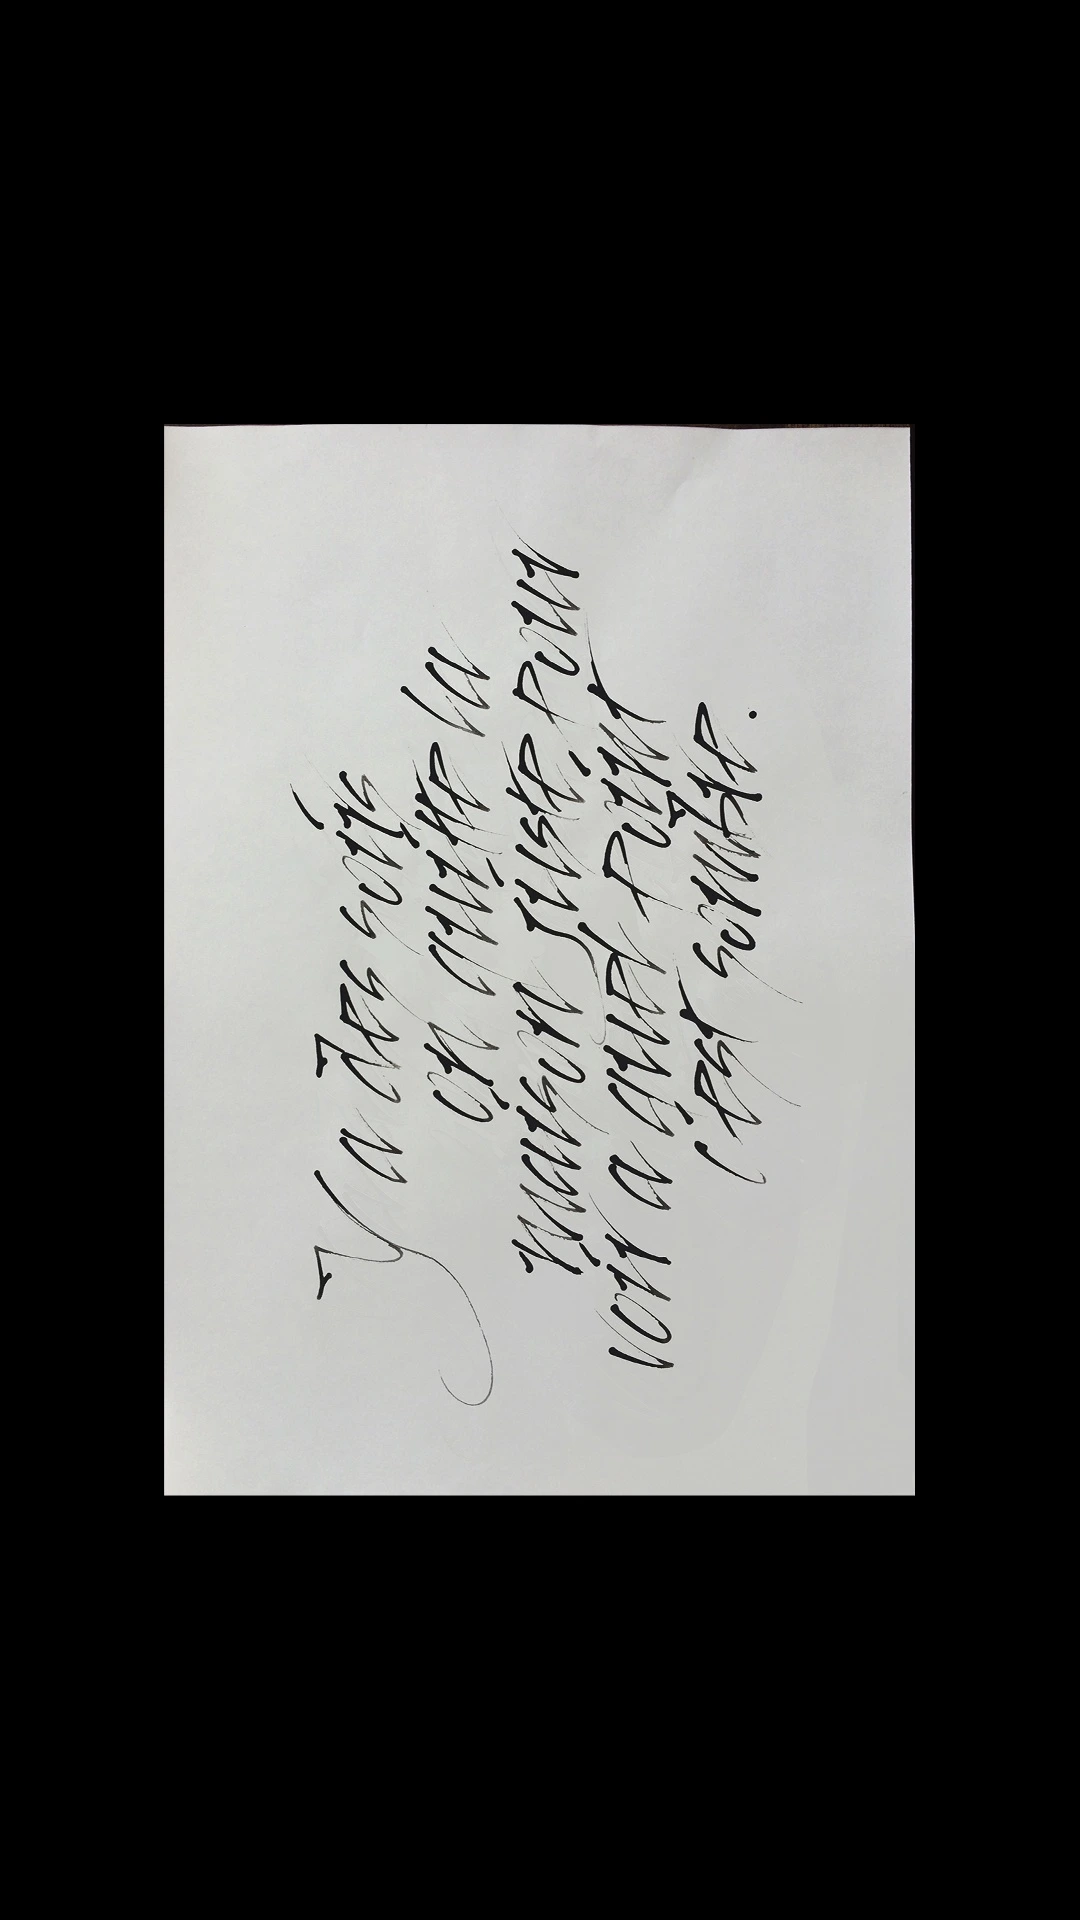 Y a des soirs
on quitte la
maison juste pour
voir à quel point
c'est sombre.